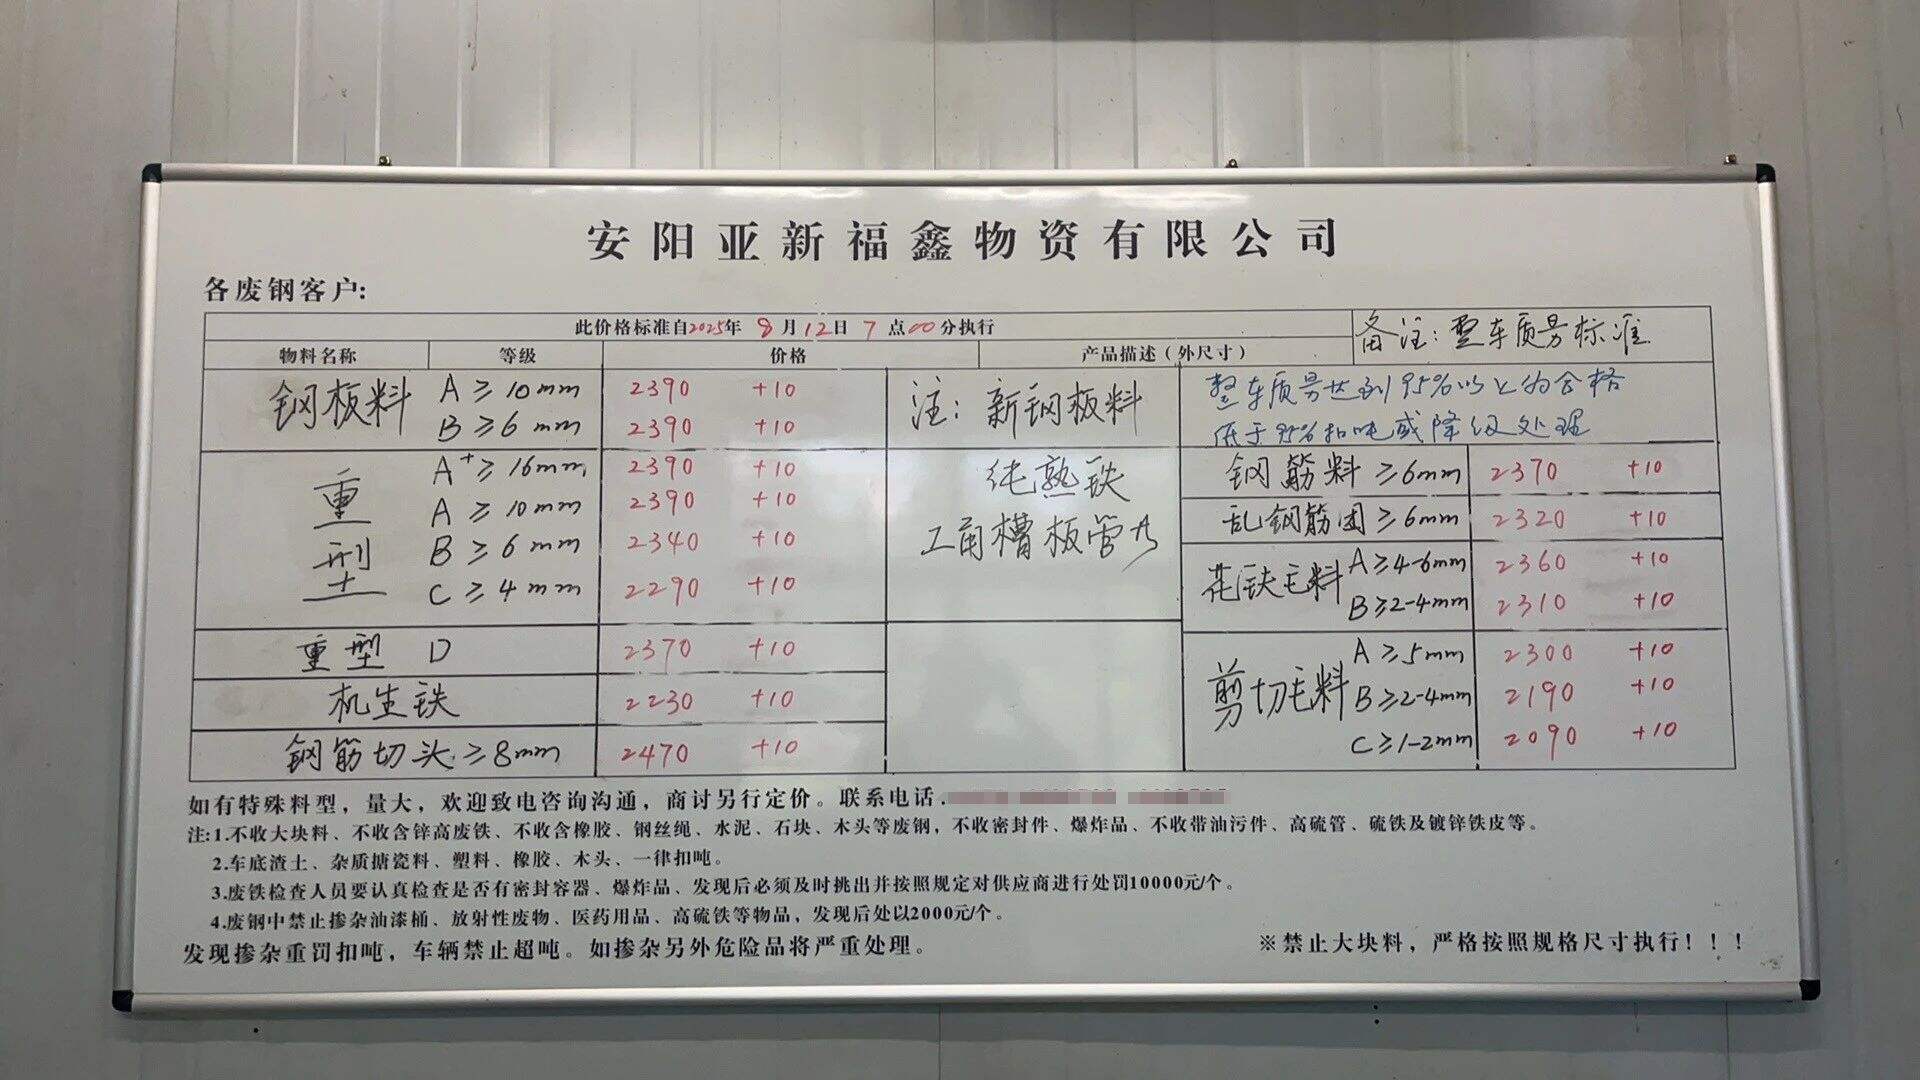 安阳亚新福鑫物资有限公司
各废钢客户:
此价格标准自2025年 8月12日 7点00分执行
备注: 整车质量标准
物料名称 等级 价格 产品描述(外尺寸)
钢板料 A ≥10mm 2390 +10
B ≥6mm 2390 +10
注: 新钢板料
整车质量达到95%以上为合格
低于95%扣吨或降级处理
重型 A+ ≥16mm 2390 +10
A ≥10mm 2390 +10
B ≥6mm 2340 +10
C ≥4mm 2290 +10
纯熟铁
工角槽板管
重型 D 2370 +10
机生铁 2230 +10
钢筋切头 ≥8mm 2470 +10
钢筋料 ≥6mm 2370 +10
乱钢筋团 ≥6mm 2320 +10
花铁毛料 A ≥4-6mm 2360 +10
B ≥2-4mm 2310 +10
剪切毛料 A ≥5mm 2300 +10
B ≥2-4mm 2190 +10
C ≥1-2mm 2090 +10
如有特殊料型，量大，欢迎致电咨询沟通，商讨另行定价。联系电话
注:1.不收大块料、不收含锌高废铁、不收含橡胶、钢丝绳、水泥、石块、木头等废钢，不收密封件、爆炸品、不收带油污件、高硫管、硫铁及镀锌铁皮等。
2.车底渣土、杂质搪瓷料、塑料、橡胶、木头、一律扣吨。
3.废铁检查人员要认真检查是否有密封容器、爆炸品、发现后必须及时挑出并按照规定对供应商进行处罚10000元/个。
4.废钢中禁止掺杂油漆桶、放射性废物、医药用品、高硫铁等物品，发现后处以2000元/个。
发现掺杂重罚扣吨，车辆禁止超吨。如掺杂另外危险品将严重处理。
※禁止大块料，严格按照规格尺寸执行！！！